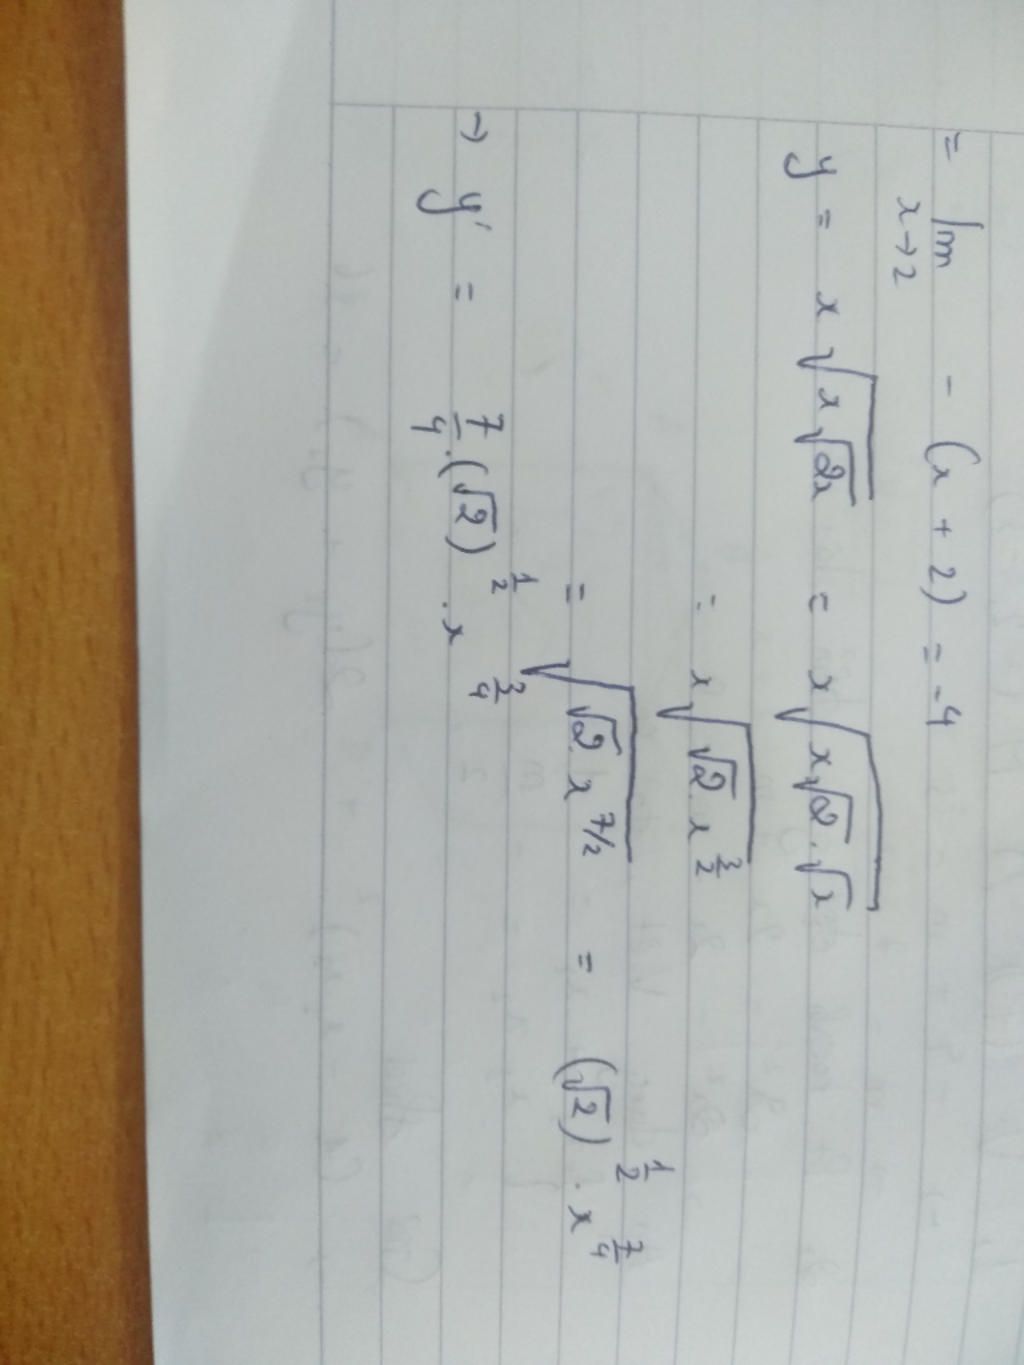 = lim x→2 - (x + 2) = -4
y = x√(x√(2x)) = x√(x√2 . √x)
= x√(√2 . x^(3/2))
= √(√2 . x^(7/2)) = (√2)^(1/2) . x^(7/4)
→ y' = 7/4 . (√2)^(1/2) . x^(3/4)